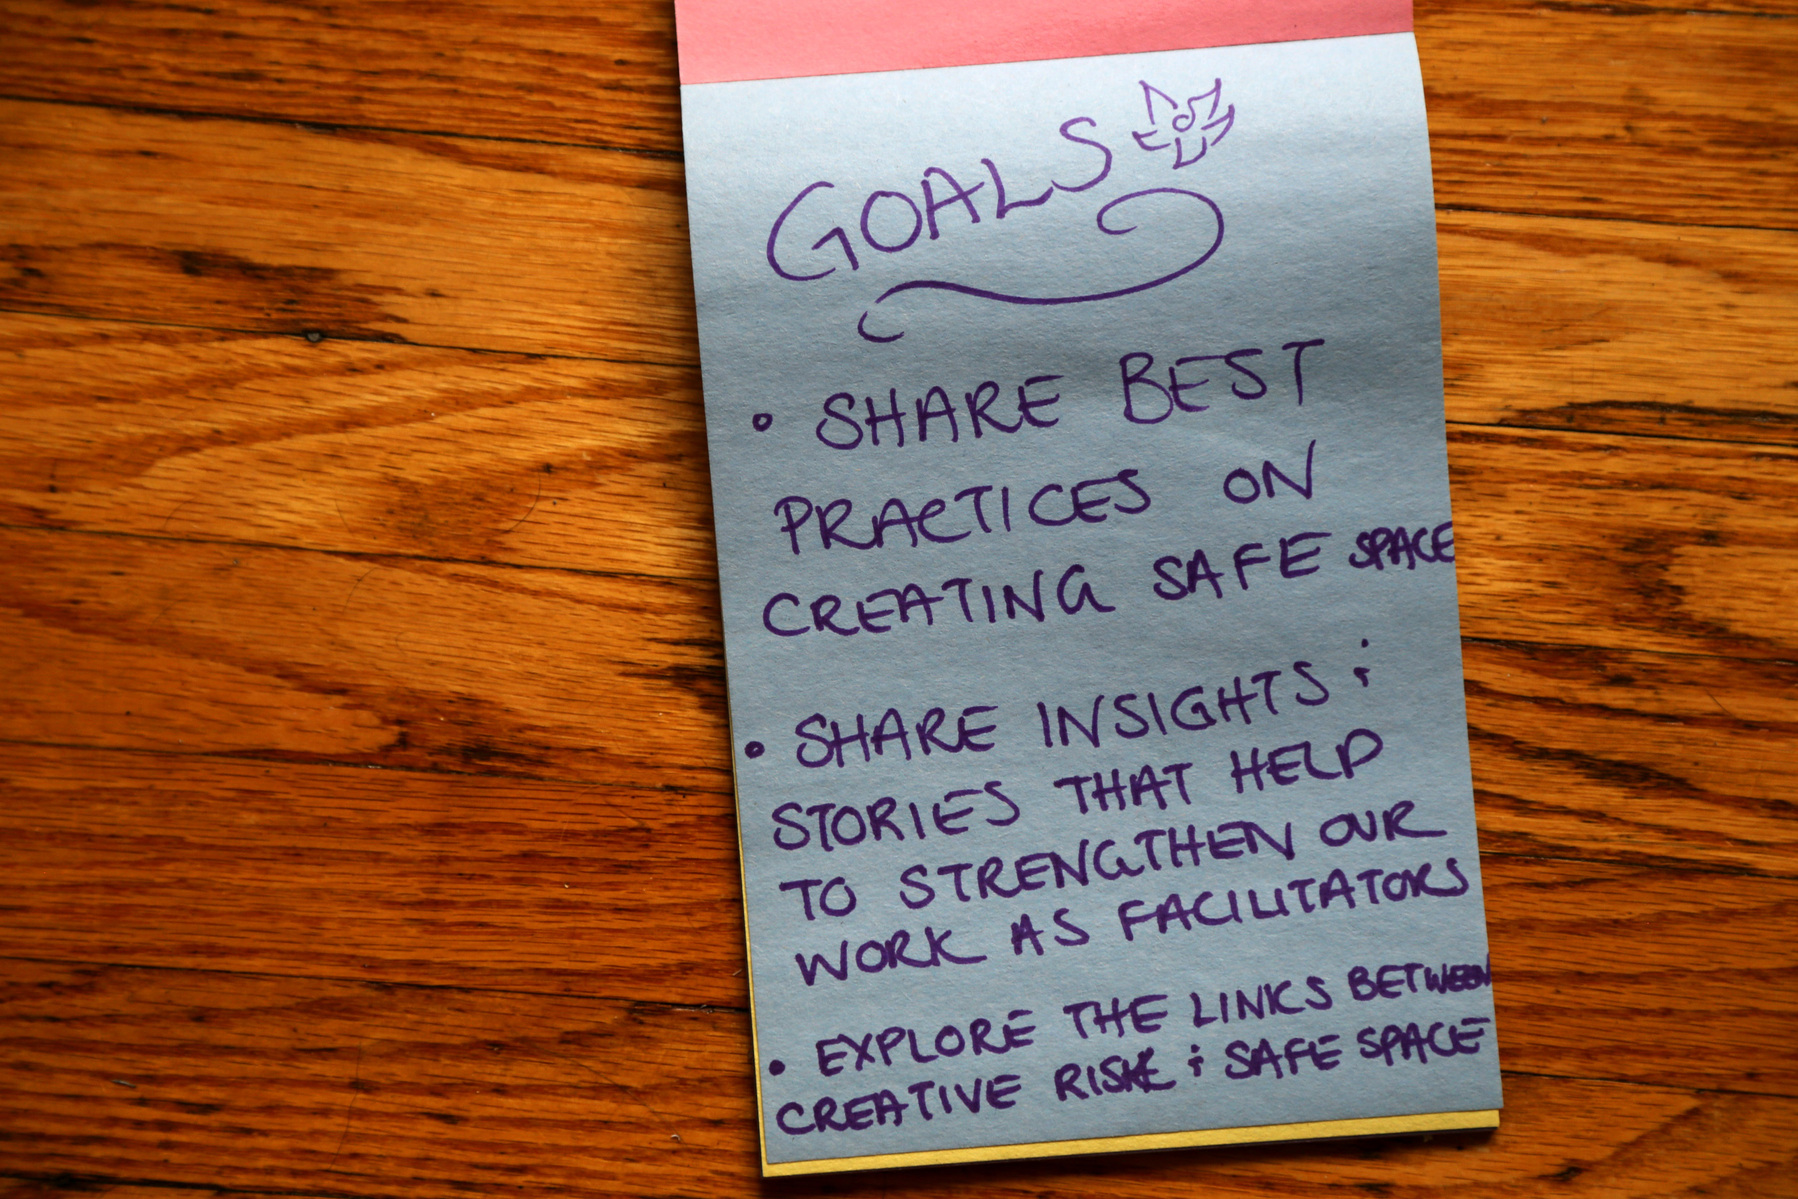 GOALS
• SHARE BEST
PRACTICES ON
CREATING SAFE SPACE
• SHARE INSIGHTS &
STORIES THAT HELP
TO STRENGTHEN OUR
WORK AS FACILITATORS
• EXPLORE THE LINKS BETWEEN
CREATIVE RISK & SAFE SPACE